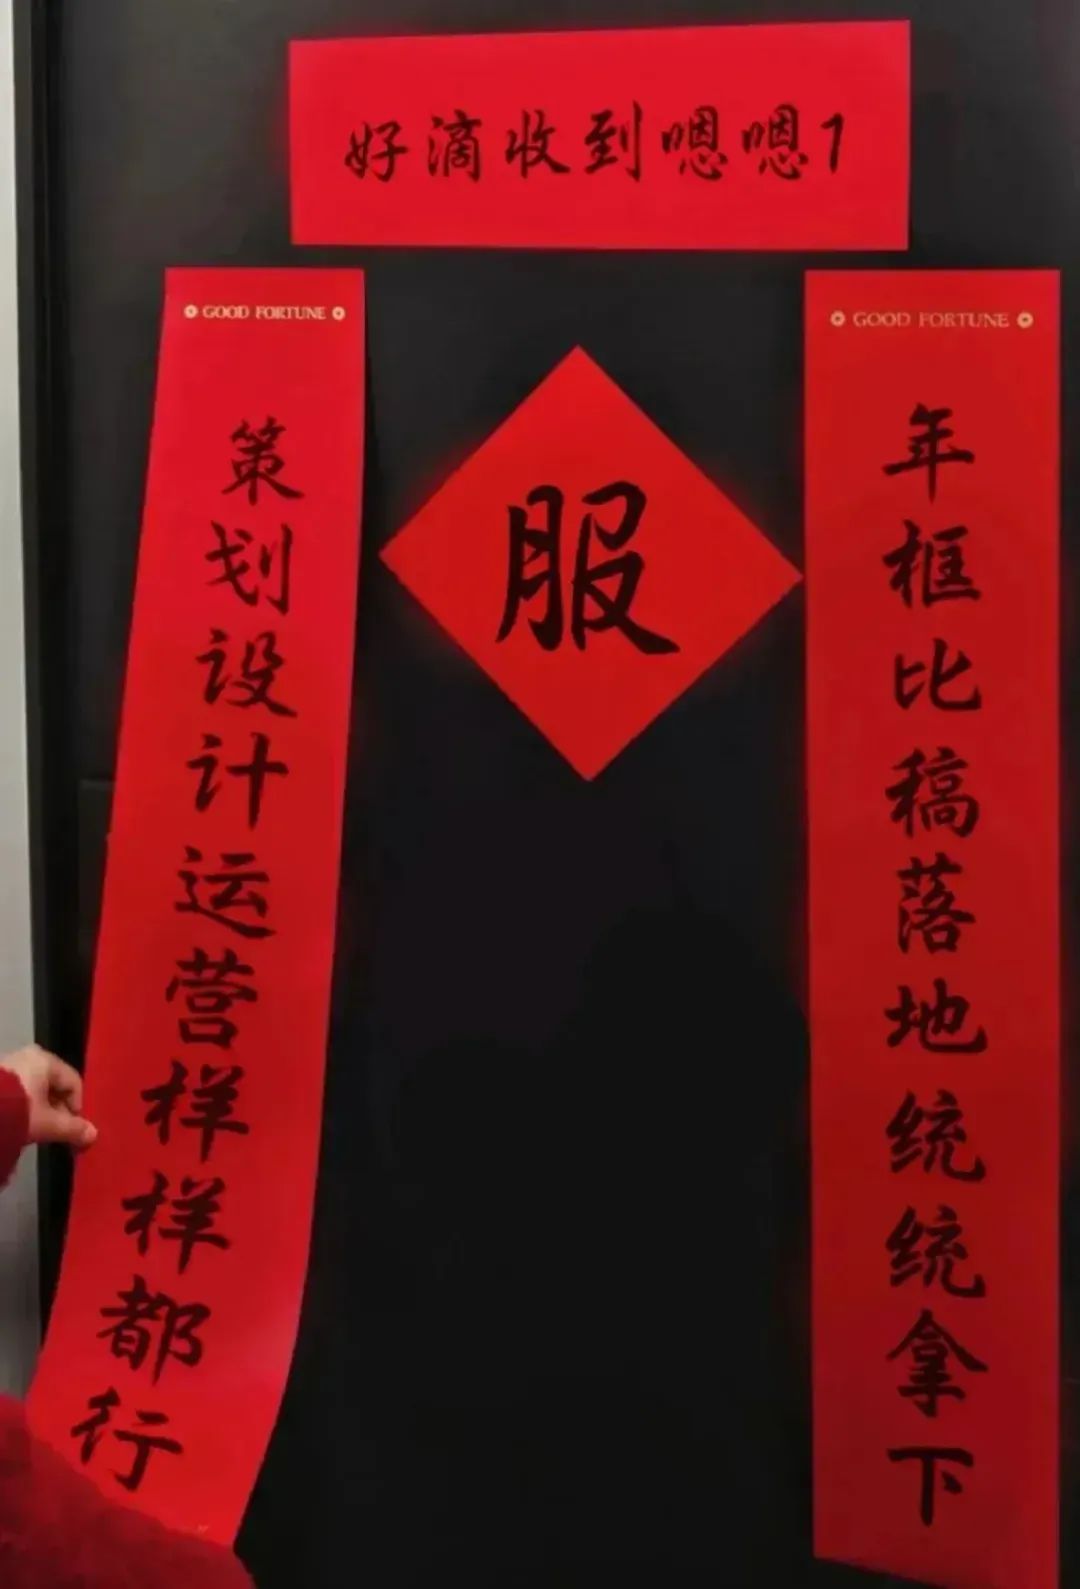 好滴收到嗯嗯1
GOOD FORTUNE
年框比稿落地统统拿下
GOOD FORTUNE
策划设计运营样样都行
服